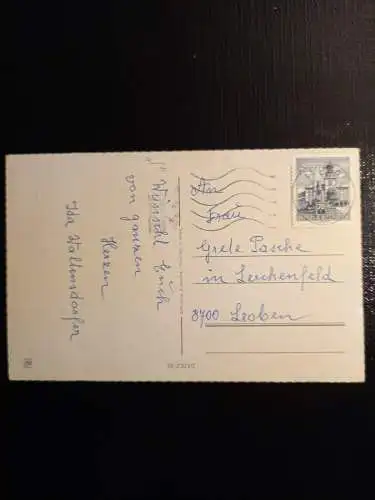 "Wünscht Euch
von ganzen
Herzen
Ida Wallmsdorfer
An
Frau
Grete Pasche
in Lerchenfeld
8700 Leoben